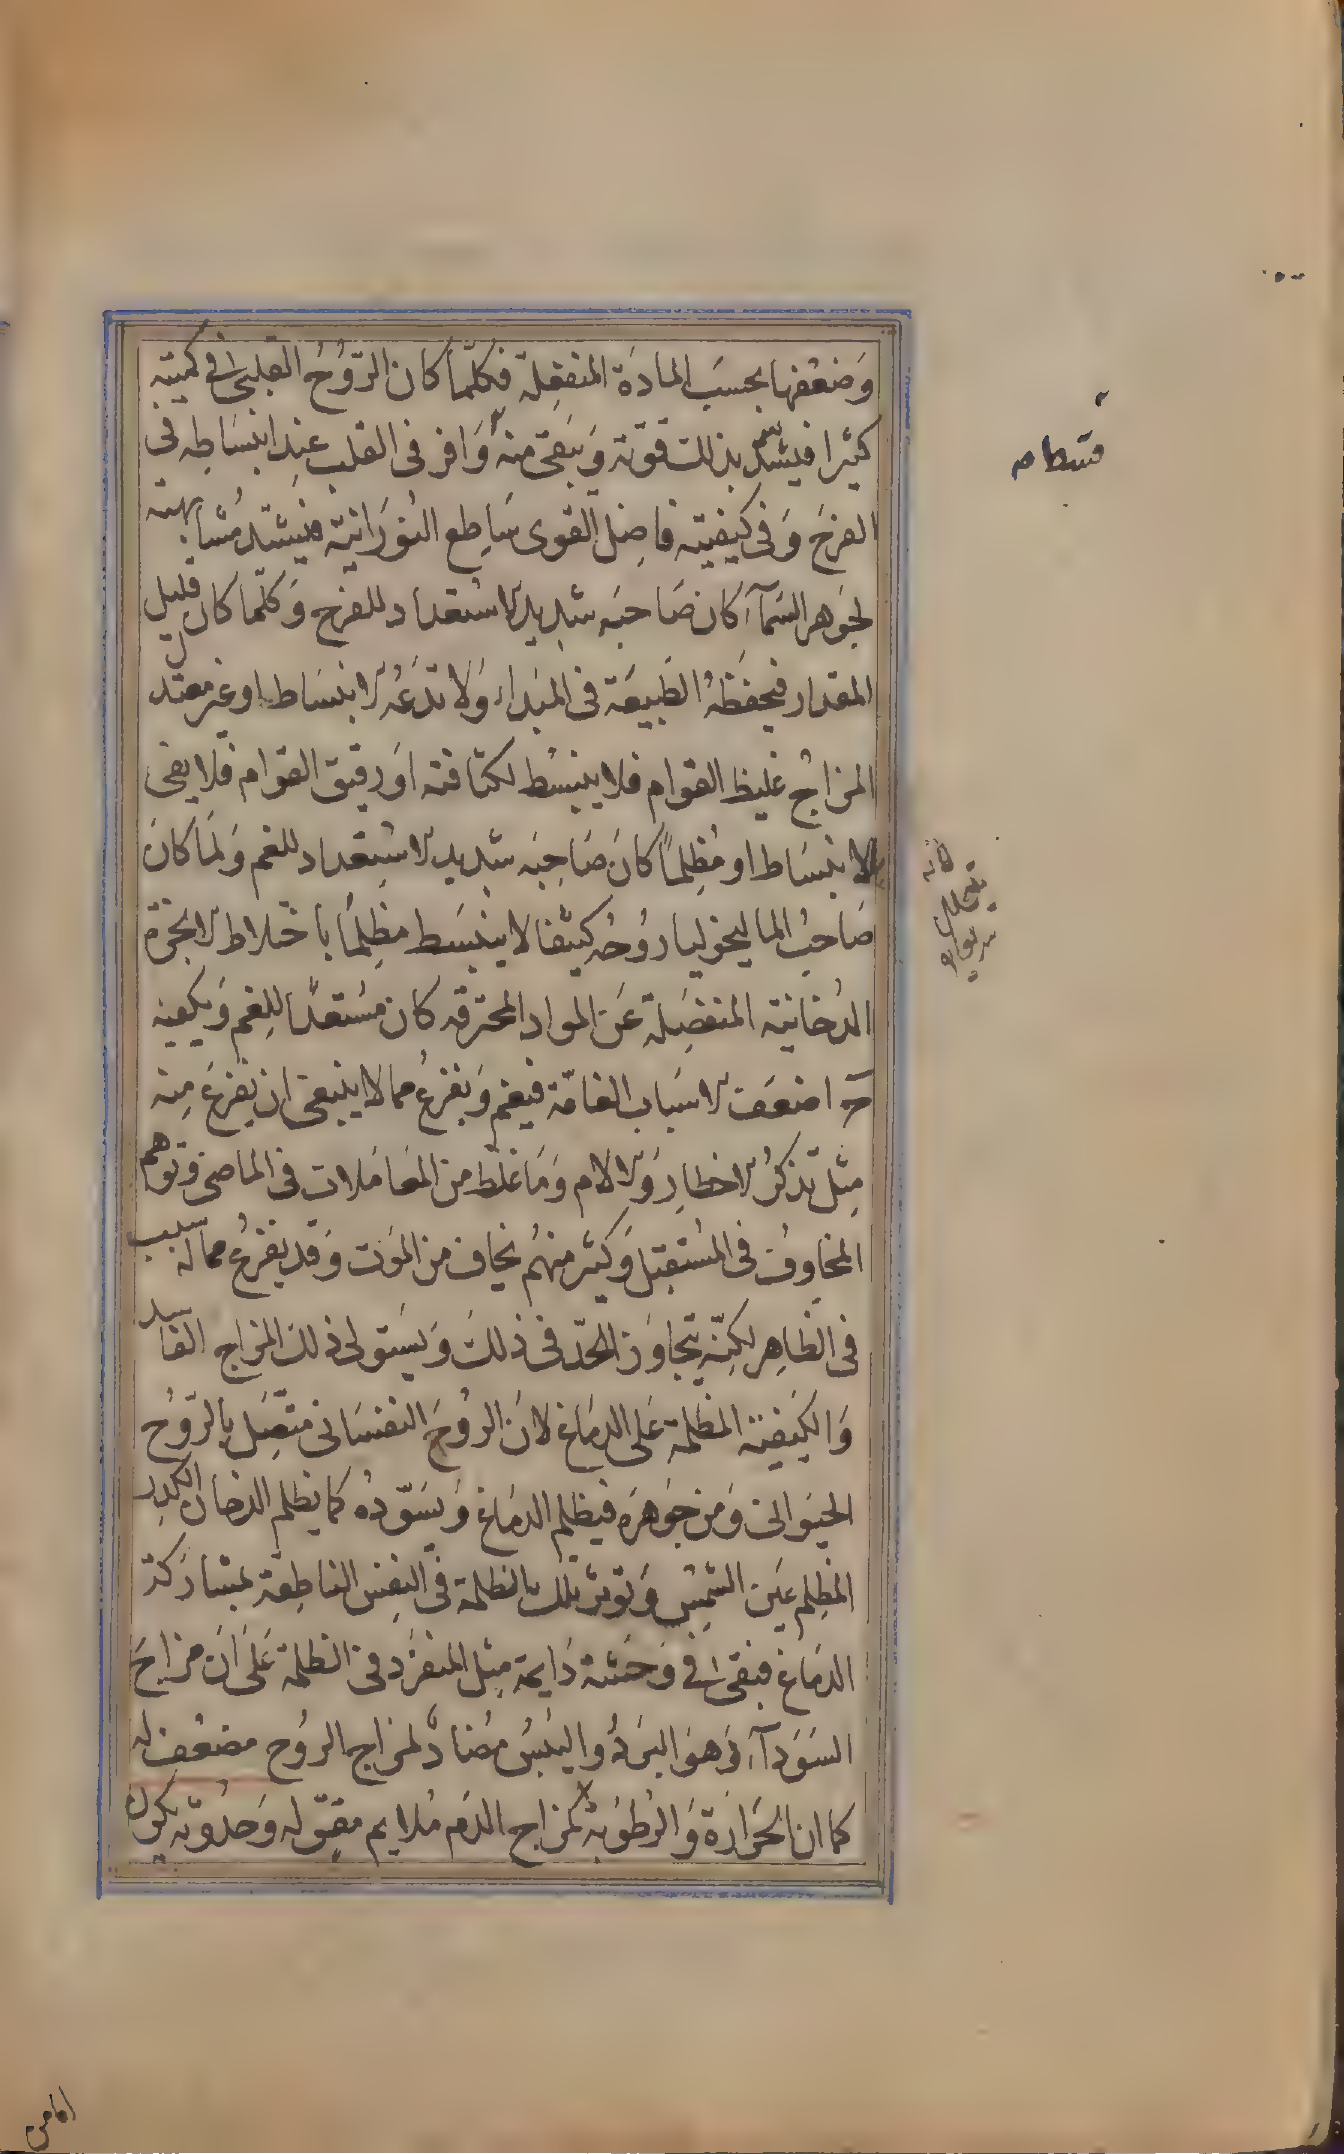 وَضعفها بحسَب المادَة المنفعِلة فكلّما كان الرّوُحُ القلبىّ فى كميته
كثيرا فيشتدّ بذلك قوّته وَيَبقى منه وَافر فى القلب عِند انبسَاطِه فى
الفرحَ وَفى كيفيته فاضِل القوى سَاطِع النوُرَانيّة فيشتدّ مُشابهته
لجوَهر السَمآء كان صَاحبَه شديد الاستعداد للفرح وَكلّما كان قليل
المقدار فيحفظهُ الطَبيعَة فى المَبداء وَلا تدَعُه الانبسَاط او غير معتدل
المزاج غليظ القوام فلا ينبسُط لكثافته اوَ رقيق القوام فلا يفى
بالانبسَاط او مُظِلماً كانَ صَاحِبَه شديد الاستِعداد للغم وَلما كانَ
صَاحبُ الماليخوليا روُحُه كثيفا لا ينبَسط مظِلماً باختلاط الابخرة
الدُخانيّة المنفصِلة عَن المواد المحترقه كان مُستعدًا للِغم وَيكفيه
حَ اضعَف الاسبَاب الغامّة فيغم وَيفزعُ مما لا ينبغى ان يفزعَ مِنه
مِثل تذكرُ الاخطارِ وَالالام وَمَا غلط من المعَامَلات فى الماضى وتوهم
المخاوفُ فى المُستقبل وَكثير منهُم يخاف من الموَت وَقد يفزعُ مما له سَبب
فى الظاهِر لكِنّه يتجاوَز الحَدّ فى ذلكَ وَيَستولى ذلك المزاج الفاسد
وَالكيَفيّة المظلمة عَلى الدمَاغ لانَ الروُحَ النفسَانى متّصِل بالرّوُح
الحيوَانى وَمن جوَهرَه فيظلم الدمَاغ وَيسَوّدهُ كما يظلم الدخان الكدر
المظِلم عَين الشمِسُ وَتؤثر تلك الظلمة فى النِفسُ الناطِقة بمشارَكة
الدمَاغ فبقى فى وَحَشة دَايمة مِثل المنفرَد فى الظلمة عَلىَ انَ مزاجَ
السَوَدآء وَهوَ البرَدُ واليبُسُ مضادّ لمزاج الروُح مضعُف له
كما ان الحَرارَة وَالرُطوُبة كمزاج الدَم مُلايم مقِوّ له وَحدُوثه يكون
قسطام
لانه
يتحلل
سريعا
امامى